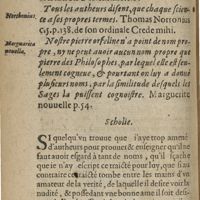 Tous les autheurs disent, que chaque scien-
ce a ses propres termes. Thomas Nortonus
Northonius.
cis, p. 138, de son ordinale Crede mihi.
Margarita
nouella.
Nostre pierre orfeline n'a point de nom pro-
pre, ny ne peut auoir aucun nom propre que
pierre des Philosophes, par lequel elle est seu-
lement cogneue, & pourtant on luy a donné
plusieurs noms, par la similitude desquels les
Sages la puissent cognoistre. Margueritte
nouuelle p. 54.
Scholie.
SI quelqu'vn trouue que i'aye trop amené
d'autheurs pour prouuer & enseigner qu'il ne
faut auoir esgard à tant de noms, qu'il sçache
que ie n'ay descript ce traicté pour luy, que si
ce traicté tombe entre les mains d'vn
amateur de la verité, de laquelle il desire voir la
nudité, & possede vne bonne ame il doit